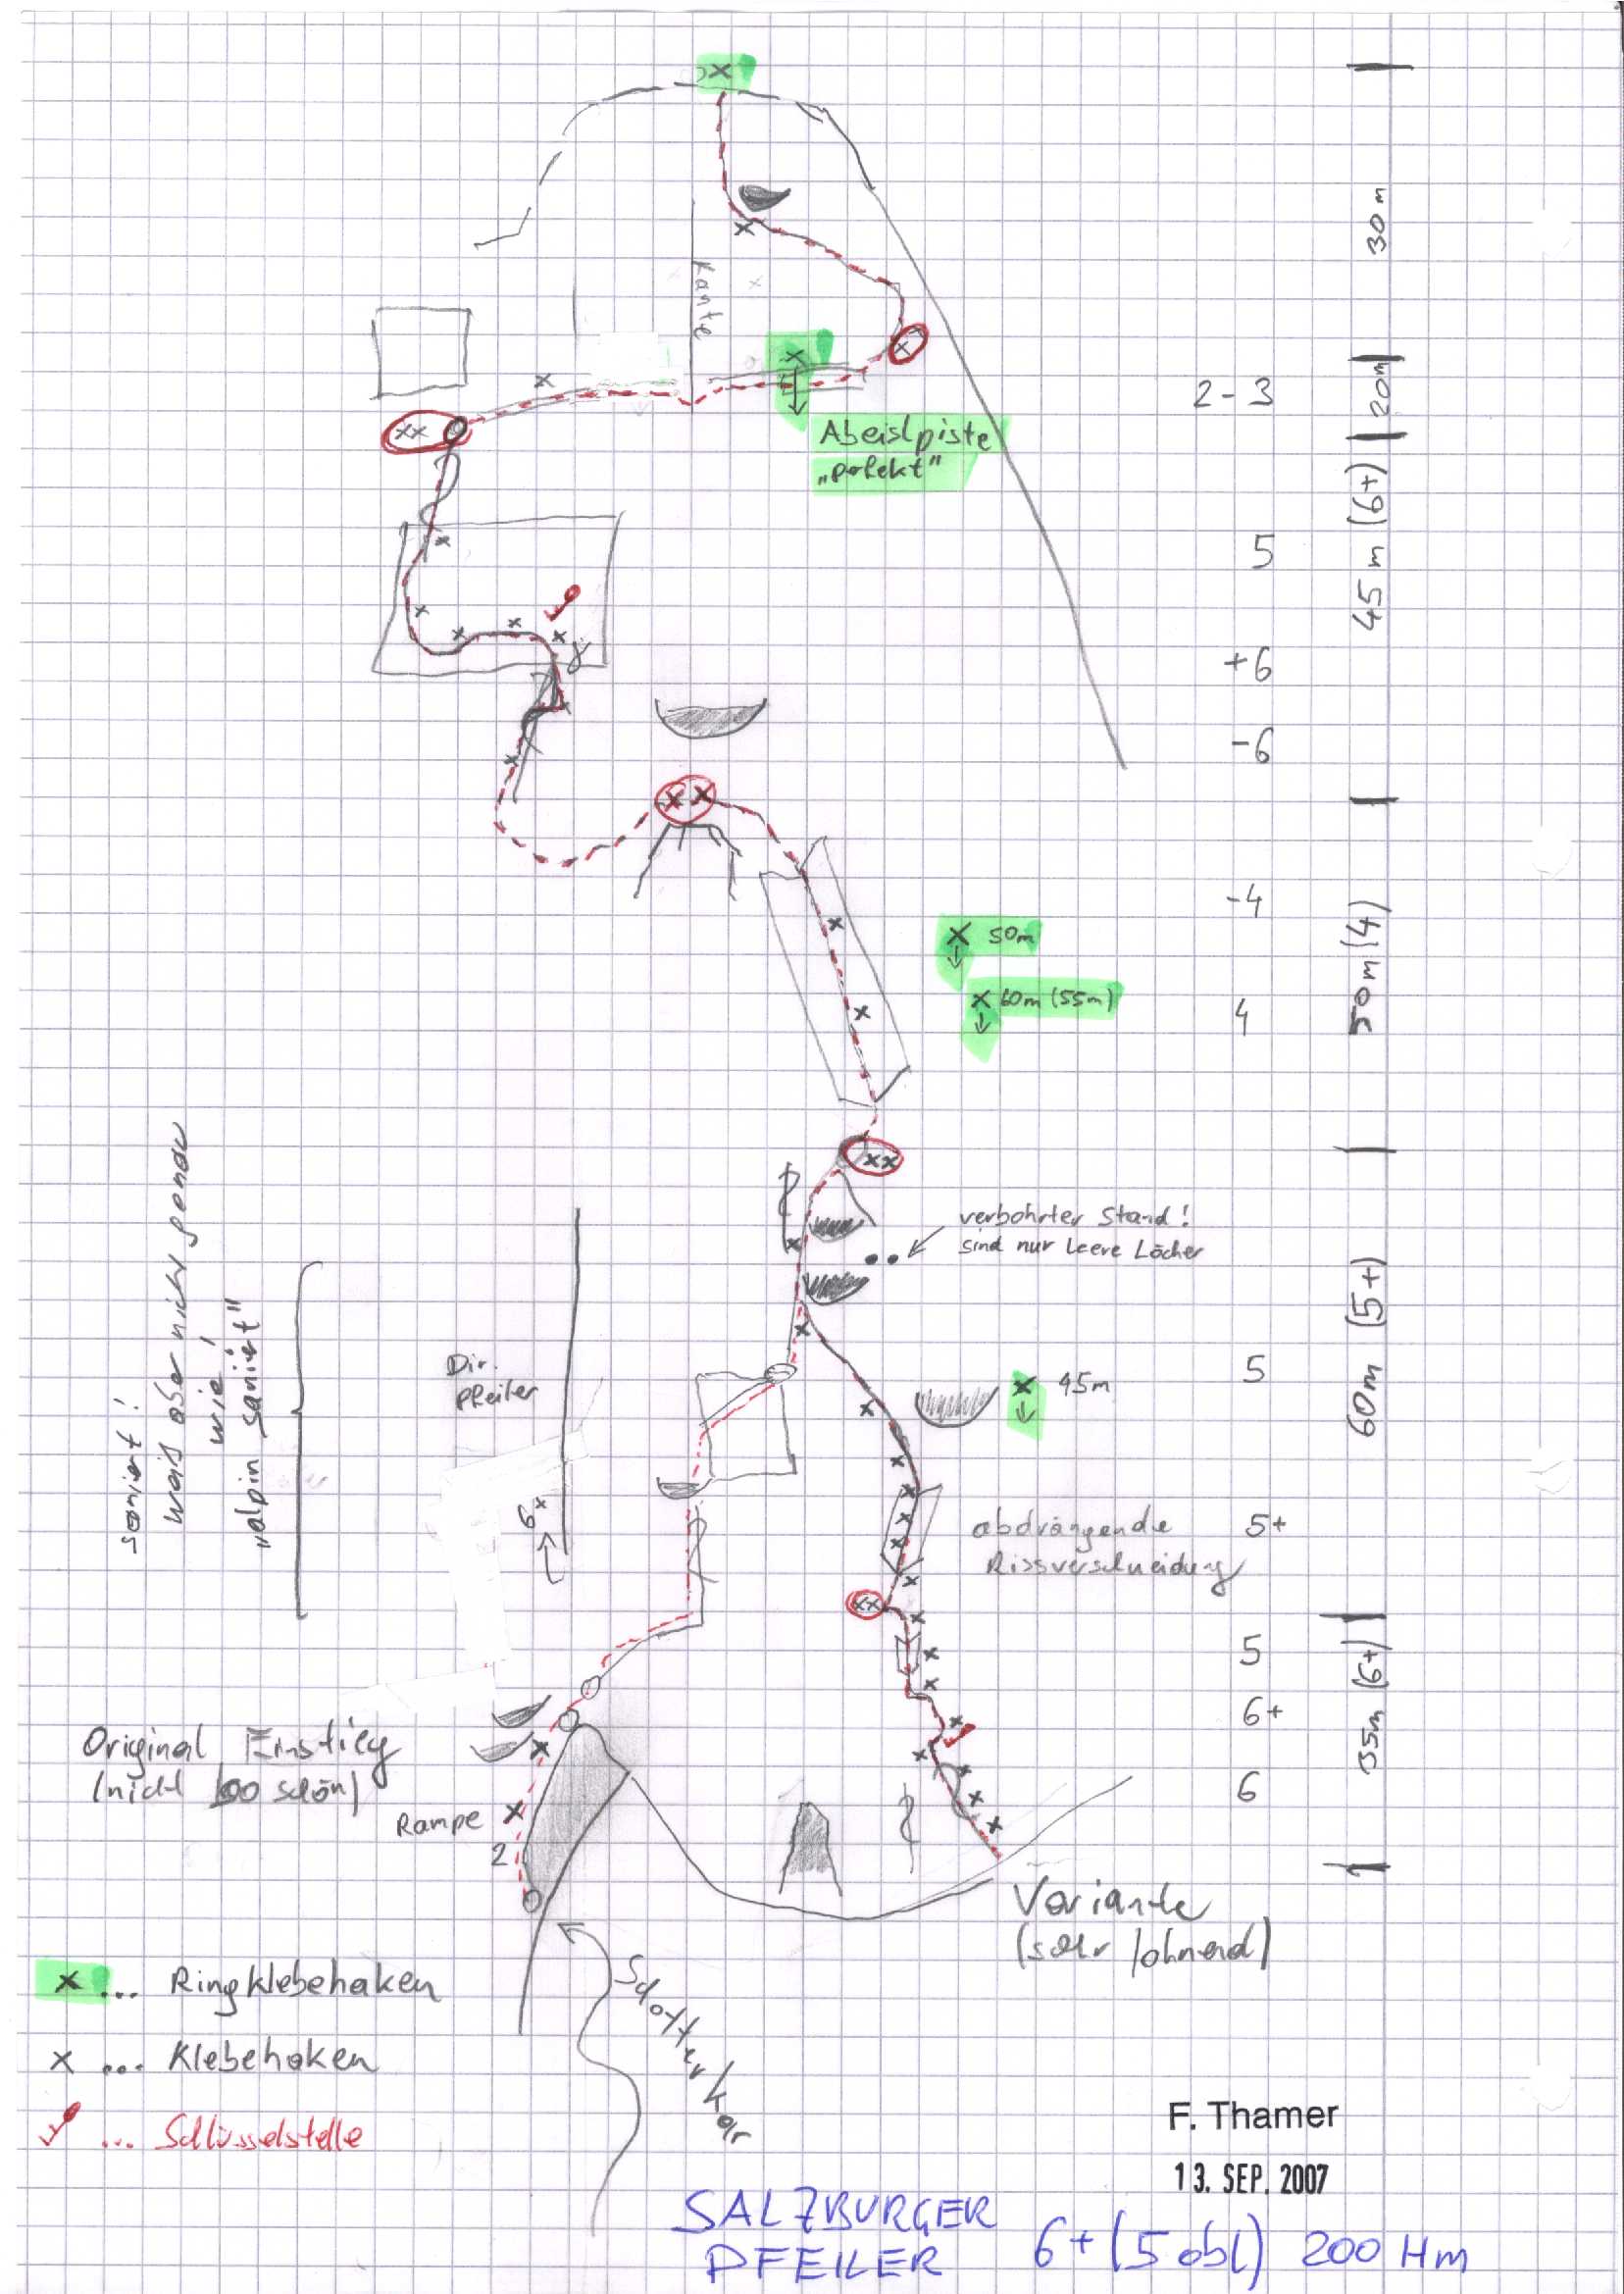 30m
Kante
20m
2-3
Abeislpiste
„perfekt"
45m (6+)
5
+6
-6
50m (4)
-4
50m
60m (55m)
4
verbohrter Stand!
sind nur leere Löcher
60m (5+)
saniert!
weiß aber nicht genau
wie!
„alpin saniert"
Dir.
Pfeiler
6+
45m
5
abdrängende
Rissverschneidung
5+
35m (6+)
5
6+
6
Original Einstieg
(nicht so schön)
Rampe
2
Variante
(sehr lohnend)
Schotterkar
x ... Ringklebehaken
x ... Klebehaken
... Schlüsselstelle
F. Thamer
13. SEP. 2007
SALZBURGER
PFEILER
6+ (5 obl) 200 Hm